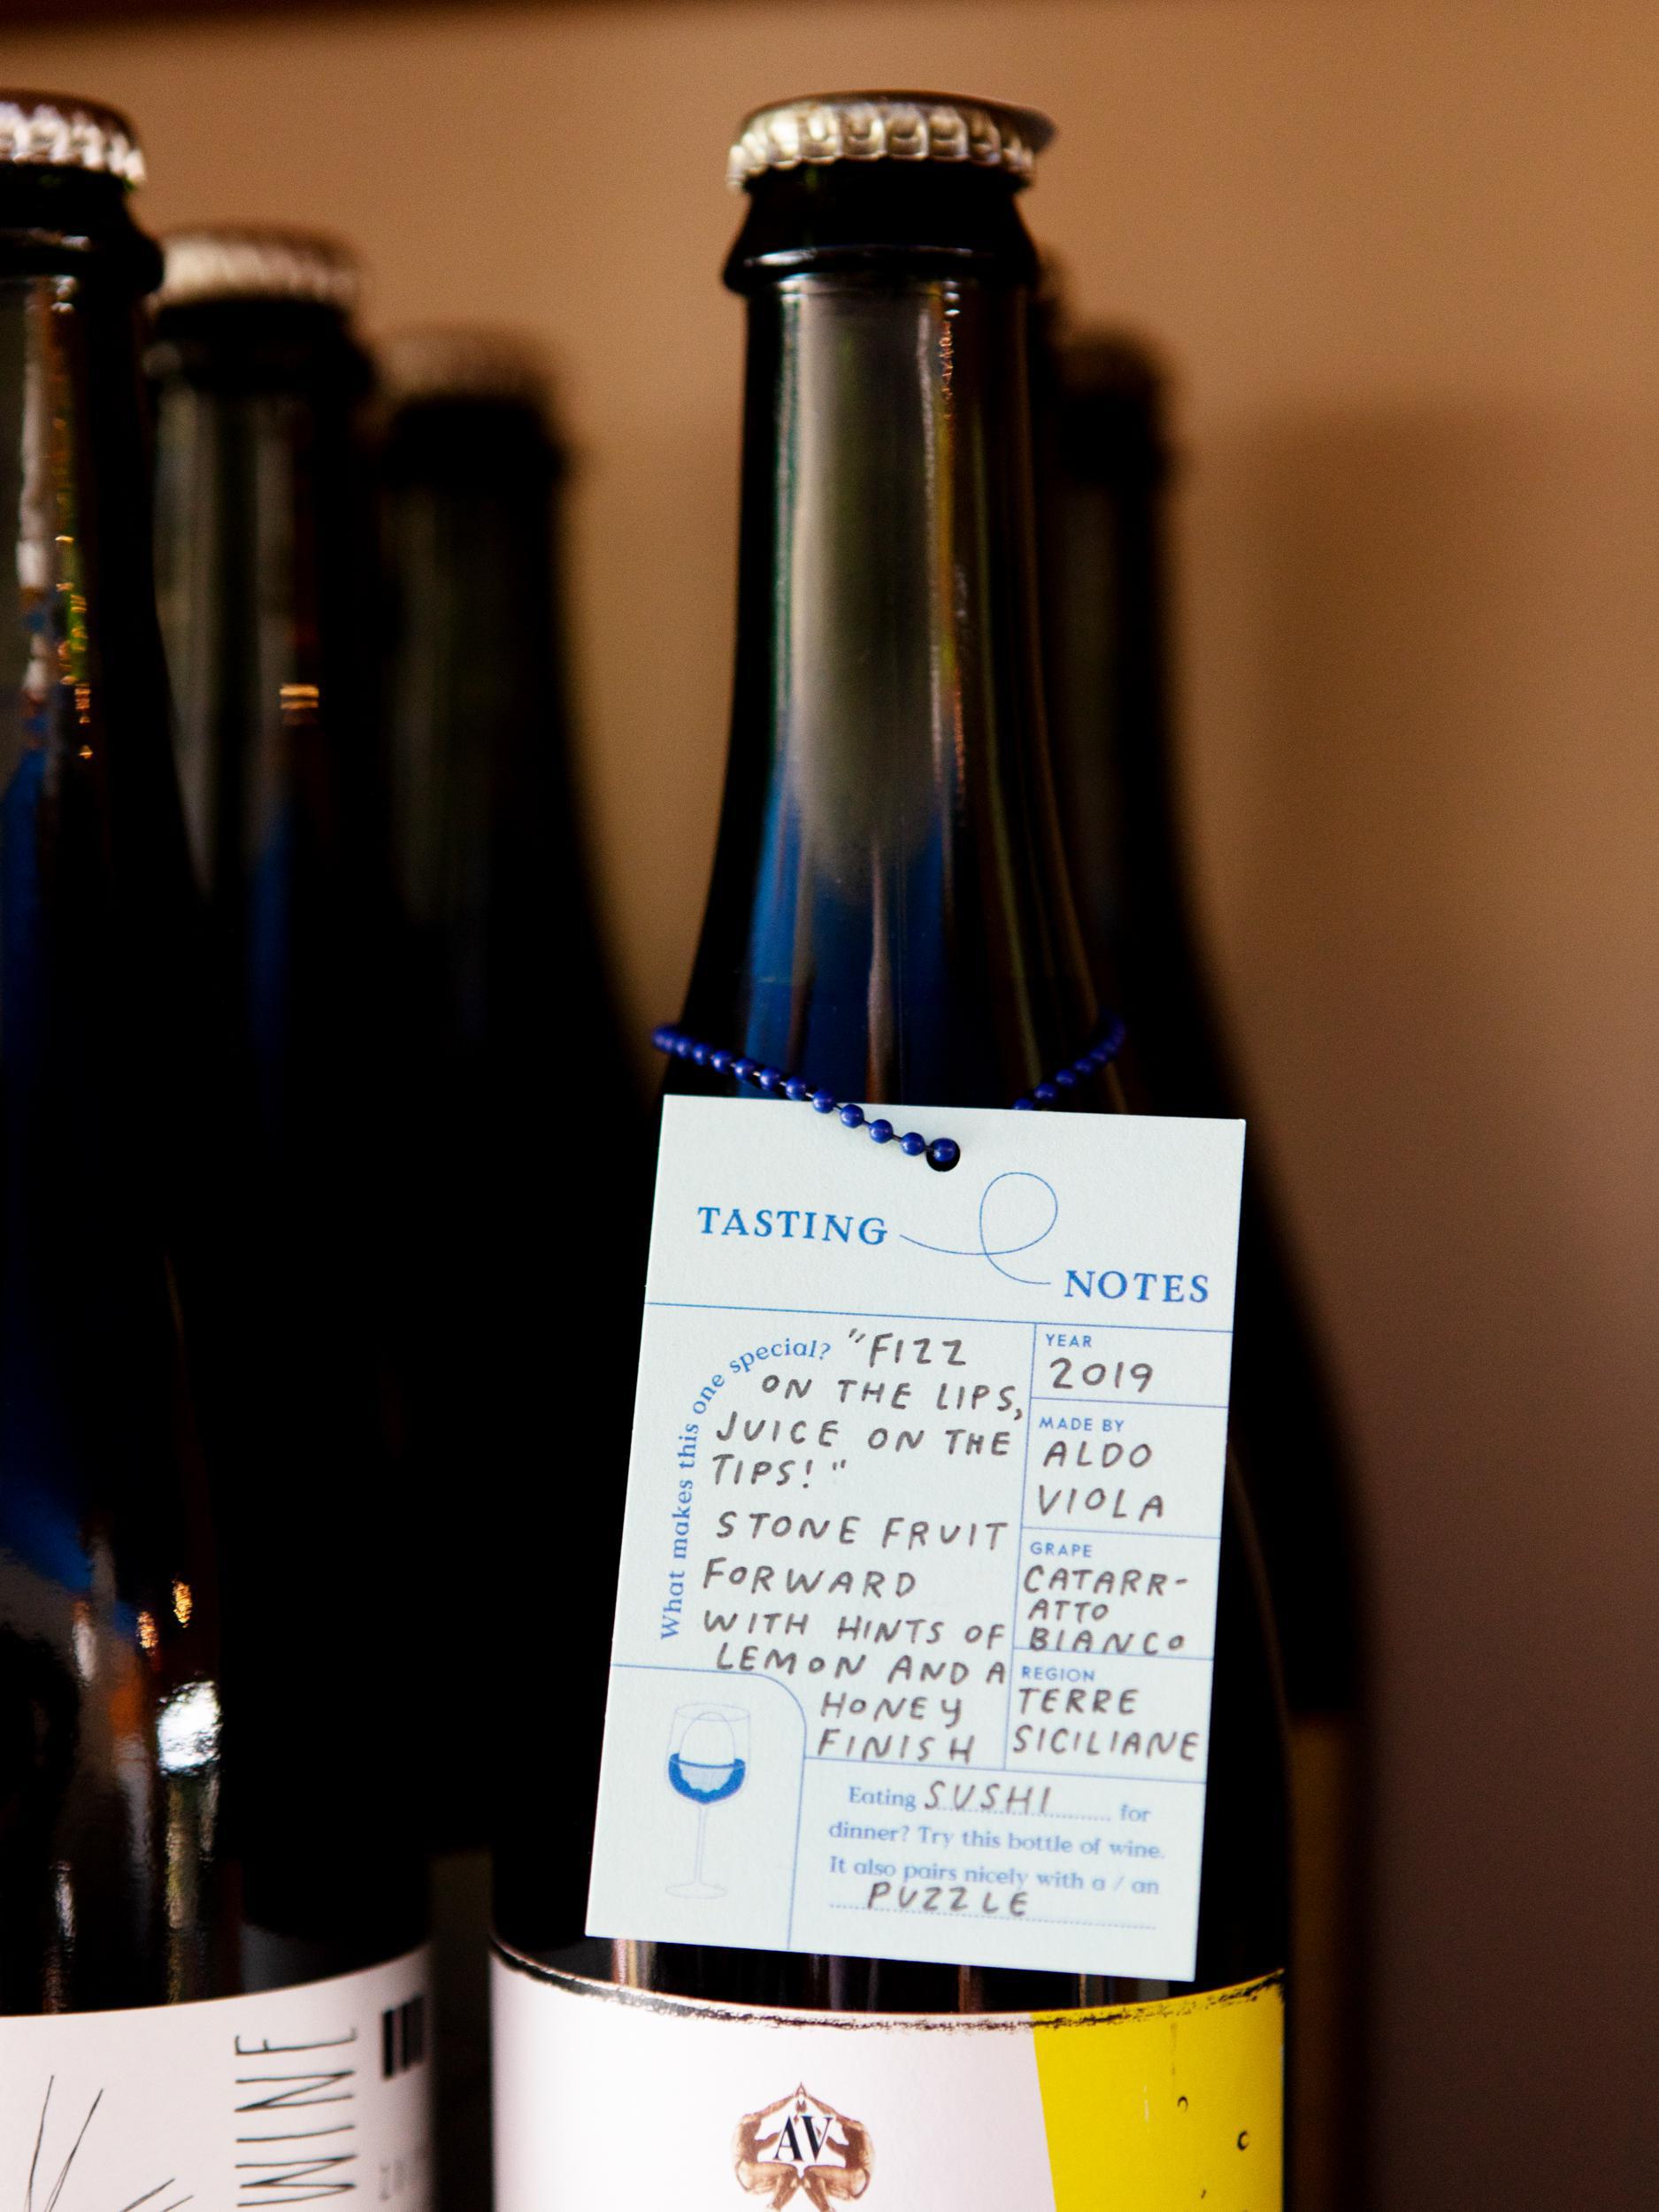 TASTING
NOTES
What makes this one special?
"FIZZ
ON THE LIPS,
JUICE ON THE
TIPS!"
STONE FRUIT
FORWARD
WITH HINTS OF
LEMON AND A
HONEY
FINISH
YEAR
2019
MADE BY
ALDO
VIOLA
GRAPE
CATARR-
ATTO
BIANCO
REGION
TERRE
SICILIANE
Eating SUSHI for
dinner? Try this bottle of wine.
It also pairs nicely with a / an
PUZZLE
WINE
AV